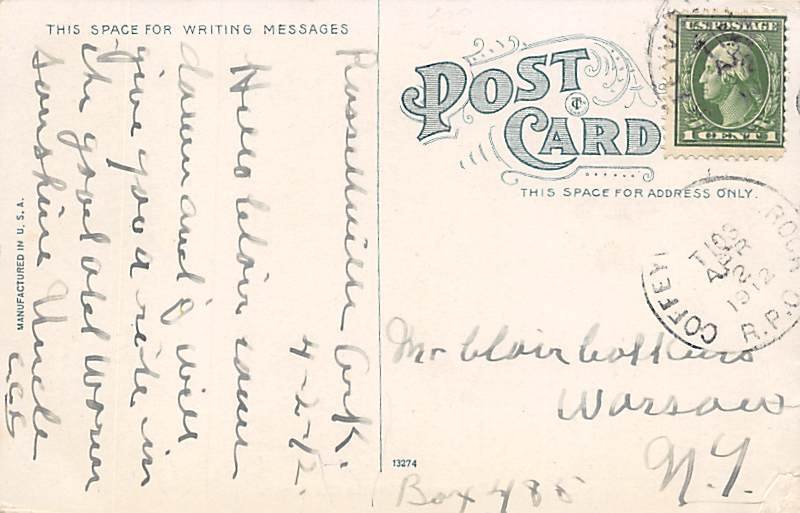 THIS SPACE FOR WRITING MESSAGES
Russellville Ark.
4-2-12.
Hello Clair come
down and I will
give you a ride in
the good old Warm
sunshine Uncle
MANUFACTURED IN U.S.A.
POST
CARD
THIS SPACE FOR ADDRESS ONLY.
U.S. POSTAGE
1 CENT 1
COFFEY ROCK
APR
2
1912
R.P.O.
Mr Clair
Warsaw
N.Y.
Box 485
13274